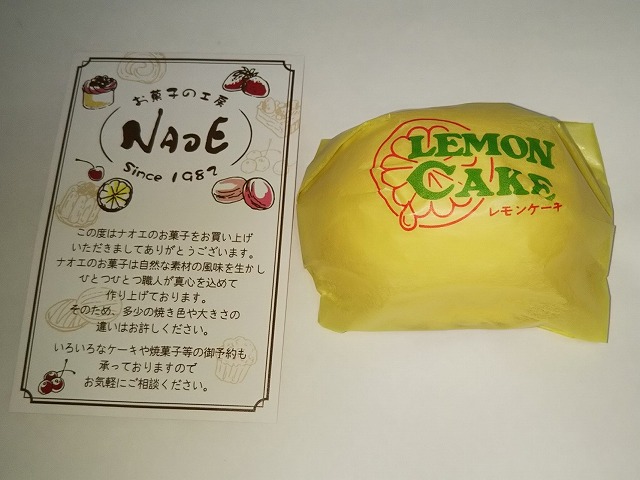 お菓子の工房
NAOE
Since 1982
この度はナオエのお菓子をお買い上げ
いただきましてありがとうございます。
ナオエのお菓子は自然な素材の風味を生かし
ひとつひとつ職人が真心を込めて
作り上げております。
そのため、多少の焼き色や大きさの
違いはお許しください。
いろいろなケーキや焼菓子等の御予約も
承っておりますので
お気軽にご相談ください。
LEMON
CAKE
レモンケーキ